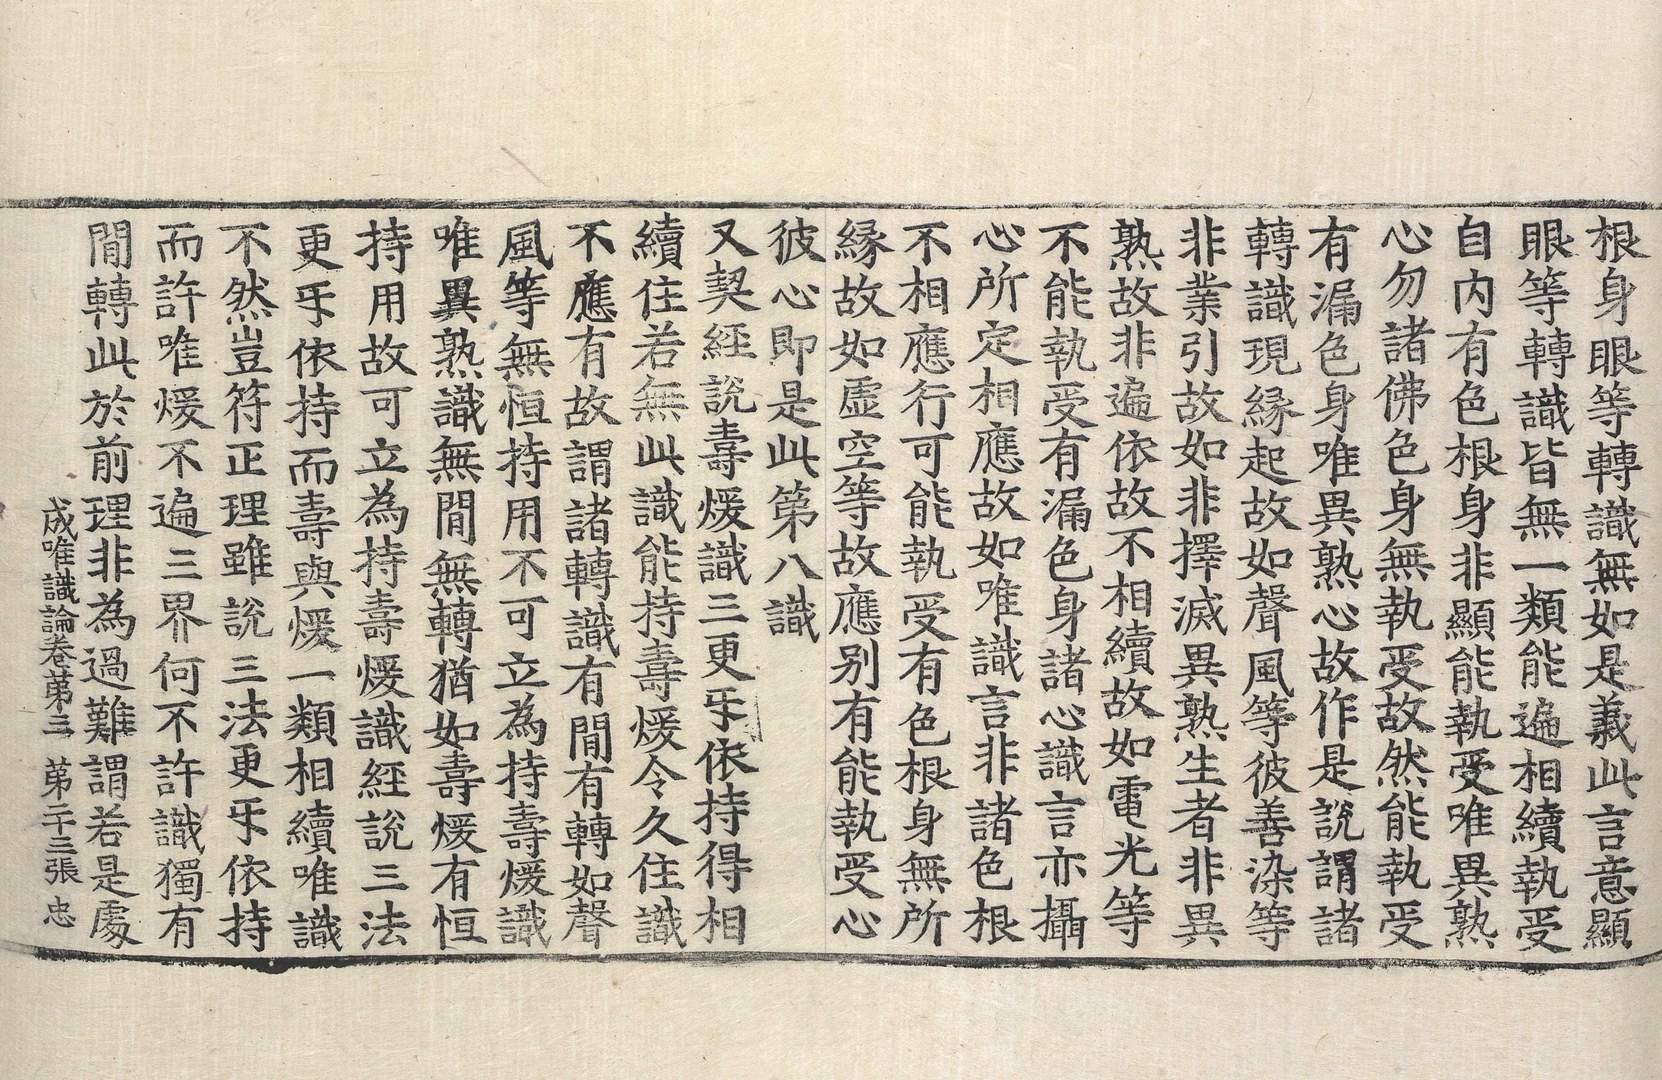 根身眼等轉識無如是義此言意顯
眼等轉識皆無一類能遍相續執受
自内有色根身非顯能執受唯異熟
心勿諸佛色身無執受故然能執受
有漏色身唯異熟心故作是說謂諸
轉識現緣起故如聲風等彼善染等
非業引故如非擇滅異熟生者非異
熟故非遍依故不相續故如電光等
不能執受有漏色身諸心識言亦攝
心所定相應故如唯識言非諸色根
不相應行可能執受有色根身無所
緣故如虛空等故應別有能執受心
彼心即是此第八識
又契經說壽煖識三更㸦依持得相
續住若無此識能持壽煖令久住識
不應有故謂諸轉識有閒有轉如聲
風等無恒持用不可立為持壽煖識
唯異熟識無閒無轉猶如壽煖有恒
持用故可立為持壽煖識經說三法
更㸦依持而壽與煖一類相續唯識
不然豈符正理雖說三法更㸦依持
而許唯煖不遍三界何不許識獨有
閒轉此於前理非為過難謂若是處
成唯識論卷第三　第二十三張　忠